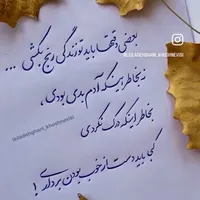 بعضی وقتها باید تو زندگی رنج بکشی ...
@LEILADEHGHANI_KHOSHNEVISI
نه بخاطر اینکه آدم بدی بودی ،
بخاطر اینکه درک نکردی
@leiladehghani_khoshnevisi
کجا باید دست از خوب بودن برداری !